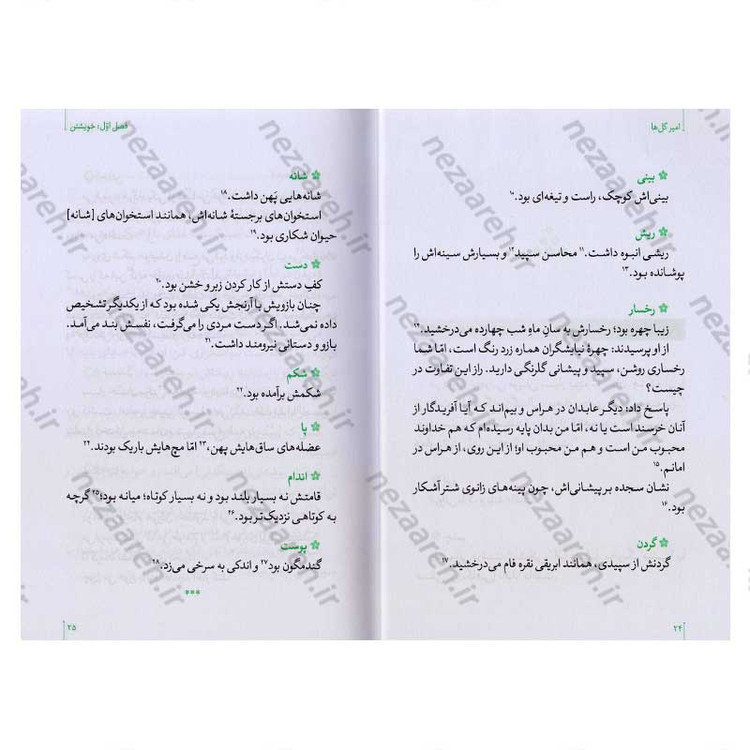 امیر گل‌ها
بینی
بینی‌اش کوچک، راست و تیغه‌ای بود.۱۰
ریش
ریشی انبوه داشت.۱۱ محاسن سپید۱۲ و بسیارش سینه‌اش را
پوشانده بود.۱۳
رخسار
زیبا چهره بود؛ رخسارش به سانِ ماهِ شب چهارده می‌درخشید.۱۴
از او پرسیدند: چهرهٔ نیایشگران هماره زرد رنگ است، امّا شما
رخساری روشن، سپید و پیشانی گلرنگی دارید. راز این تفاوت در
چیست؟
پاسخ داد: دیگر عابدان در هراس و بیم‌اند که آیا آفریدگار از
آنان خرسند است یا نه، امّا من بدان پایه رسیده‌ام که هم خداوند
محبوب من است و هم من محبوب او؛ از این روی، از هراس در
امانم.۱۵
نشان سجده بر پیشانی‌اش، چون پینه‌های زانوی شتر آشکار
بود.۱۶
گردن
گردنش از سپیدی، همانند ابریقی نقره فام می‌درخشید.۱۷
۲۴
فصل اوّل: خویشتن
شانه
شانه‌هایی پَهن داشت.۱۸
استخوان‌های برجستهٔ شانه‌اش، همانند استخوان‌های [شانه]
حیوان شکاری بود.۱۹
دست
کفِ دستش از کار کردن زبر و خشن بود.۲۰
چنان بازویش با آرنجش یکی شده بود که از یکدیگر تشخیص
داده نمی‌شد. اگر دست مردی را می‌گرفت، نفسش بند می‌آمد.
بازو و دستانی نیرومند داشت.۲۱
شکم
شکمش برآمده بود.۲۲
پا
عضله‌های ساق‌هایش پهن،۲۳ امّا مچ‌هایش باریک بودند.۲۴
اندام
قامتش نه بسیار بلند بود و نه بسیار کوتاه؛ میانه بود؛۲۵ گرچه
به کوتاهی نزدیک‌تر بود.۲۶
پوست
گندمگون بود۲۷ و اندکی به سرخی می‌زد.۲۸
***
۲۵
nezaareh.ir